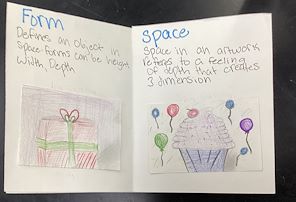 Form
Defines an object in
space Forms can be height
Width, Depth
Space
Space in an artwork
refers to a feeling
of depth that creates
3 dimension